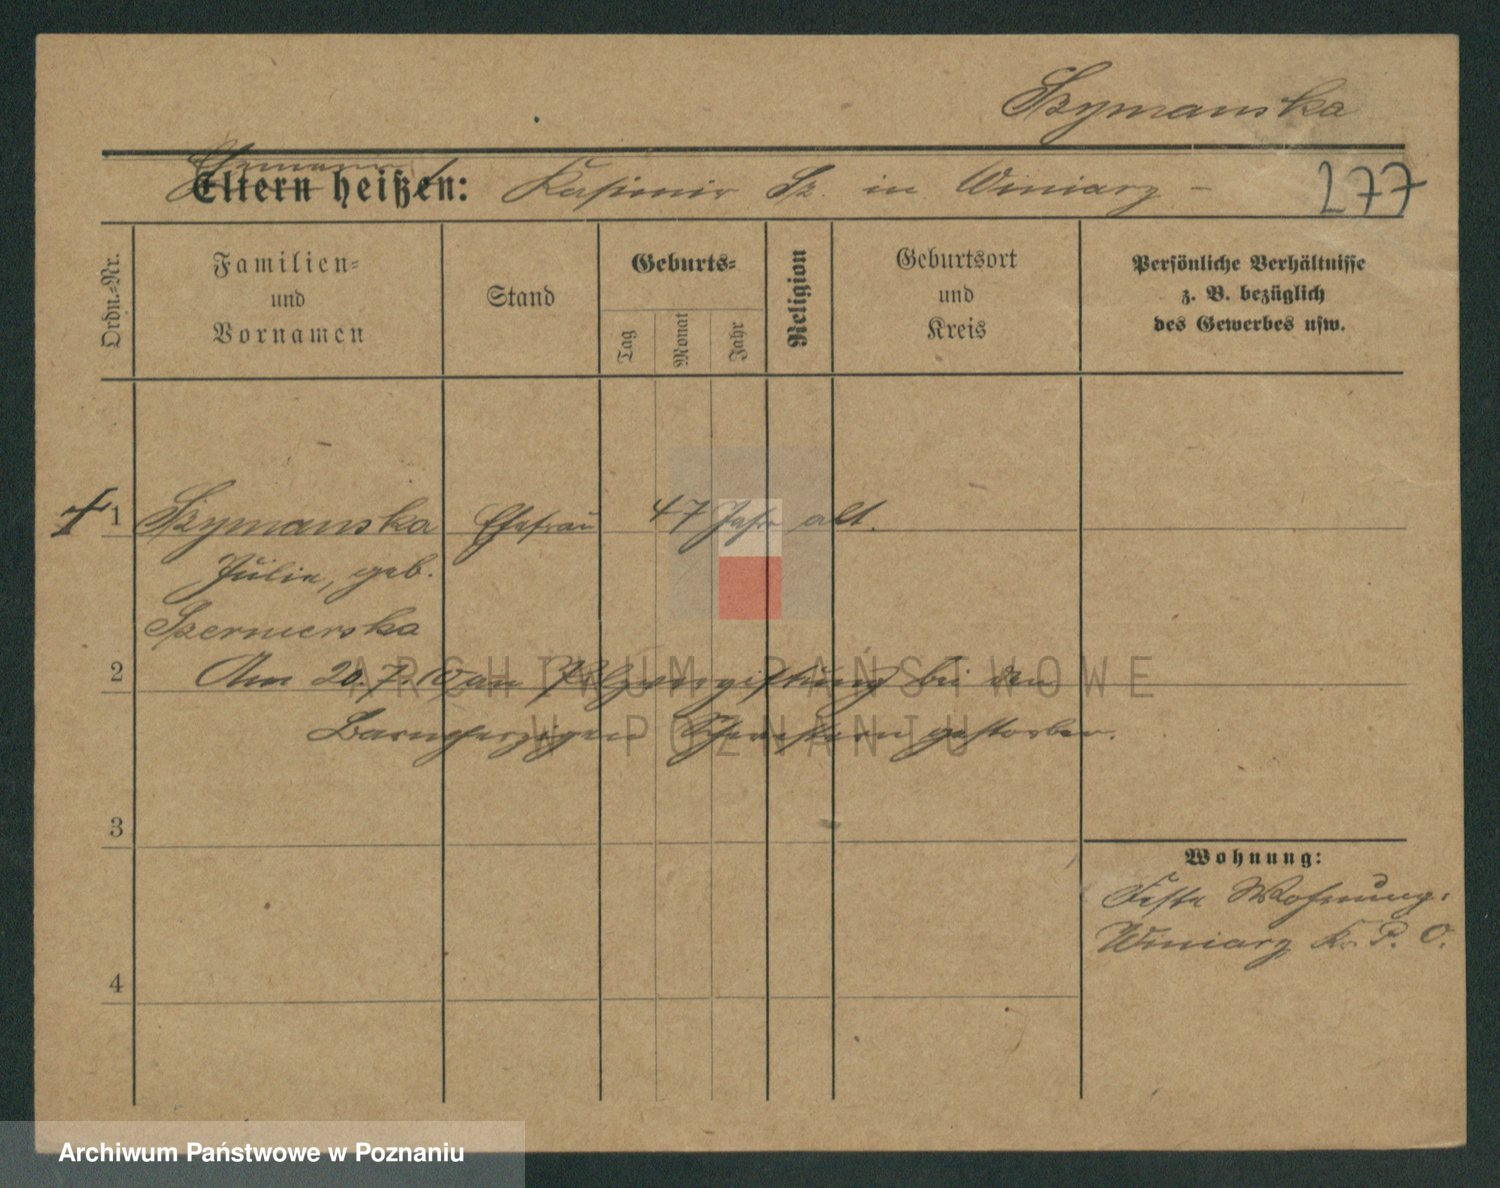 Szymanska
Ehemann
Eltern heißen: Kasimir Sz. in Winiary -
277
Ordn.-Nr.
Familien-
und
Vornamen
Stand
Geburts-
Tag
Monat
Jahr
Religion
Geburtsort
und
Kreis
Persönliche Verhältnisse
z. B. bezüglich
des Gewerbes usw.
1 Szymanska Ehefrau 47 Jahr alt.
Julie, geb.
2
Am 20.7. an Pilzvergiftung bei den
Barmherzigen Schwestern gestorben.
3
4
Wohnung:
Feste Wohnung:
Winiary Kr. P. O.
ARCHIWUM PAŃSTWOWE
W POZNANIU
Archiwum Państwowe w Poznaniu